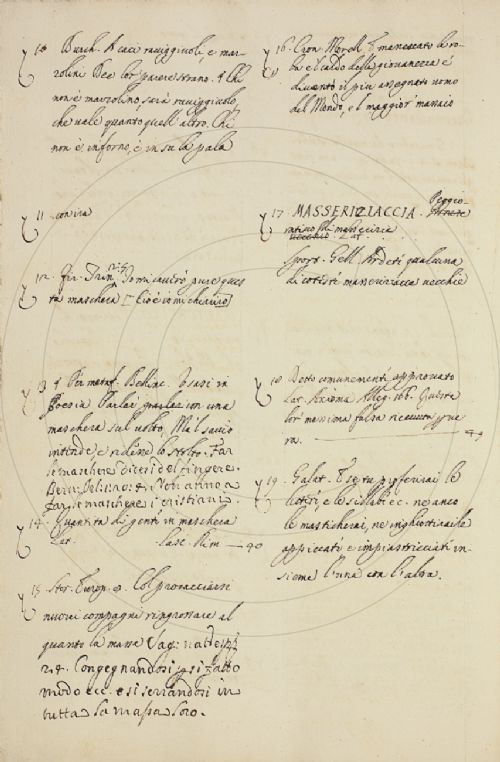 10 Burch. A caci raviggiuoli, e mar-
zolini Dee lor parere strano. 4 Chi
non è marzolino, sarà raviggiuolo,
che vale quanto quell'altro. Chi
non è in forno, è in su la pala
11 con ira
12. Fir. Trin. 2. 4. Io mi cavérò pure ques
ta maschera [Cioè io mi chiarirò]
13. Per metaf. Bellinc. Usasi in
Poesia parlar con una
maschera sul volto, Ma 'l savio
intende, e ridene lo stolto. Far
le maschere dicesi del fingere.
Bern. Non anno a
far le maschere i cristiani
14. Quantità di genti in maschera
Lat. Lasc. Rim — 90
15. Stor. Europ. 9. Col procacciarsi
nuovi compagni ringrossare al
quanto la massa Sag. nat. esp.
24. Congegnandosi sì fatto
modo ecc. e si serrandosi in
tutta la massa loro.
16. Cron. Morell. E mancato la ro-
ba e 'l caldo della giovanezza è
divenuto il più assegnato uomo
del Mondo, e 'l maggior massaio
17. MASSERIZIACCIA. Peggio-
rativo di masserizia
Lat.
Sport. Gell. Ardeti qualcuna
di coteste masseriziacce vecchie
18 Detto comunemente approvato
Lat. Axioma Alleg. 166. Questa
lor massima falsa ricevuta per ve
ra. — 44
19. Galat. E se tu profferirai le
lettere, e le sillabe ec. ne anco
le masticherai, ne inghiottiraile
appiccate, e impiastricciati in-
sieme l'una con l'altra.